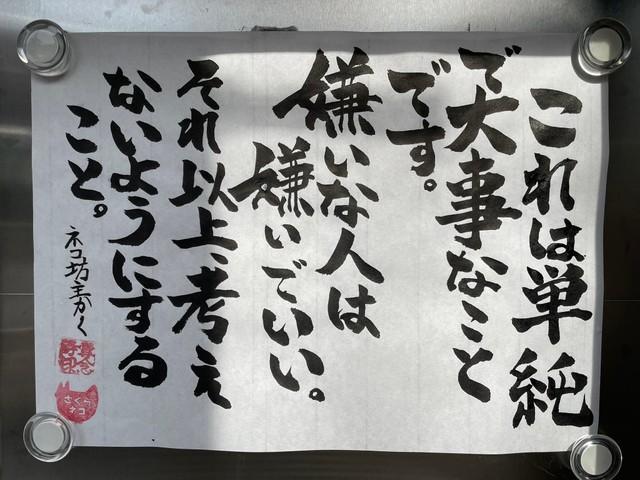 これは単純
で大事なこと
です。
嫌いな人は
嫌いでいい。
それ以上、考え
ないようにする
こと。
ネコ坊主かく
さくら
ネコ